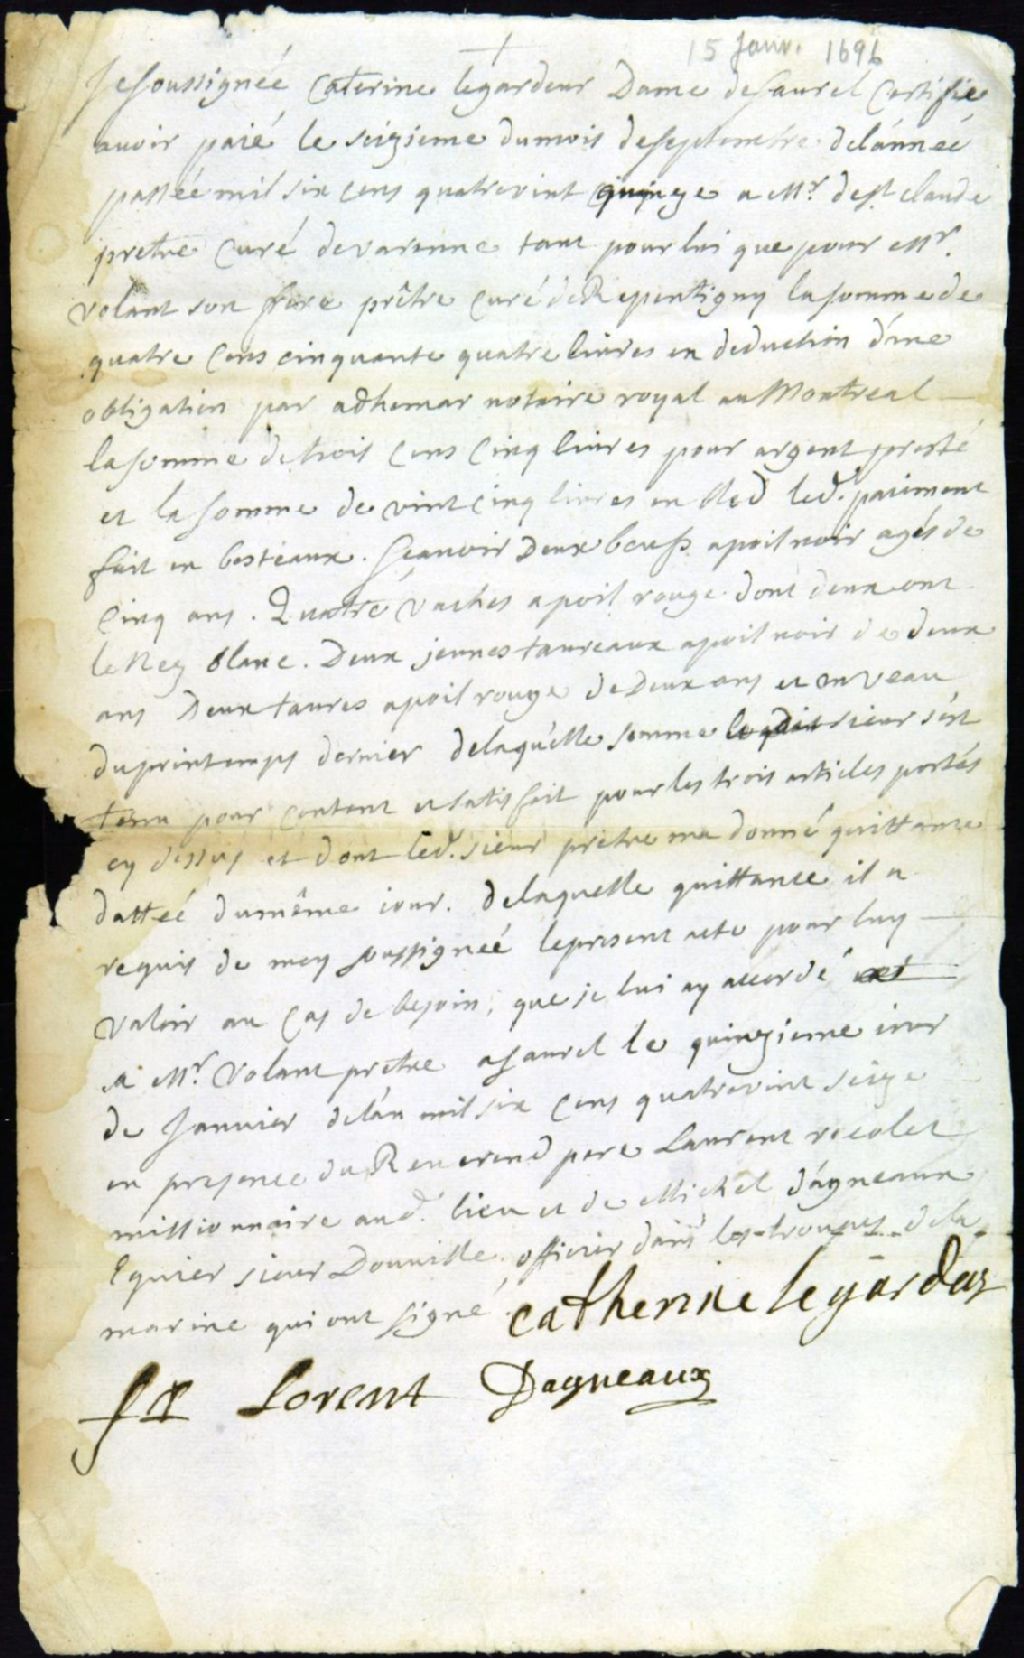 15 Janv. 1696
Je soussignée Caterine legardeur Dame de Saurel Certifie
avoir paié le seizieme dumois deseptembre delánneé
passée mil six cens quatrevint quinze a Mr. de St claude
pretre Curé devarenne tant pour lui que pour Mr.
volant son frere prêtre curé de Repentigny la somme de
quatre cens cinquante quatre livres en deduction d'une
obligation par adhemar notaire royal au Montreal
la somme de trois cens cinq livres pour argent presté
et la somme de vint cinq livres en bled led. paiement
fait en bestiaux. sçauoir Deux boeufs apoil noir agés de
cinq ans. Quatre vaches apoil rouge dont deux ont
le Nez blanc. Deux jeunes taureaux apoil noir de deux
ans Deux taures apoil rouge de Deux ans et un veau
duprintemps dernier delaquelle somme sieur s'est
tenu pour content et satisfait pour les trois articles portés
cy dessus et dont led. sieur pretre ma donné quittance
datteé dumême iour. delaquelle quittance il a
requis de moy soussigneé leprésent acte pour luy
valoir au cas de besoin, que je lui ay accordé
a Mr. volant prêtre aSaurel le quinzieme iour
de Janvier delán mil six cens quatrevint seize
en presence du Reuerend pere Laurent recolet
missionnaire aud. lieu et de Michel d'agneaux
Equier sieur Douuille officier dans les troupes dela
marine qui ont signé catherine legardeur
fr Lorent Dagneaux